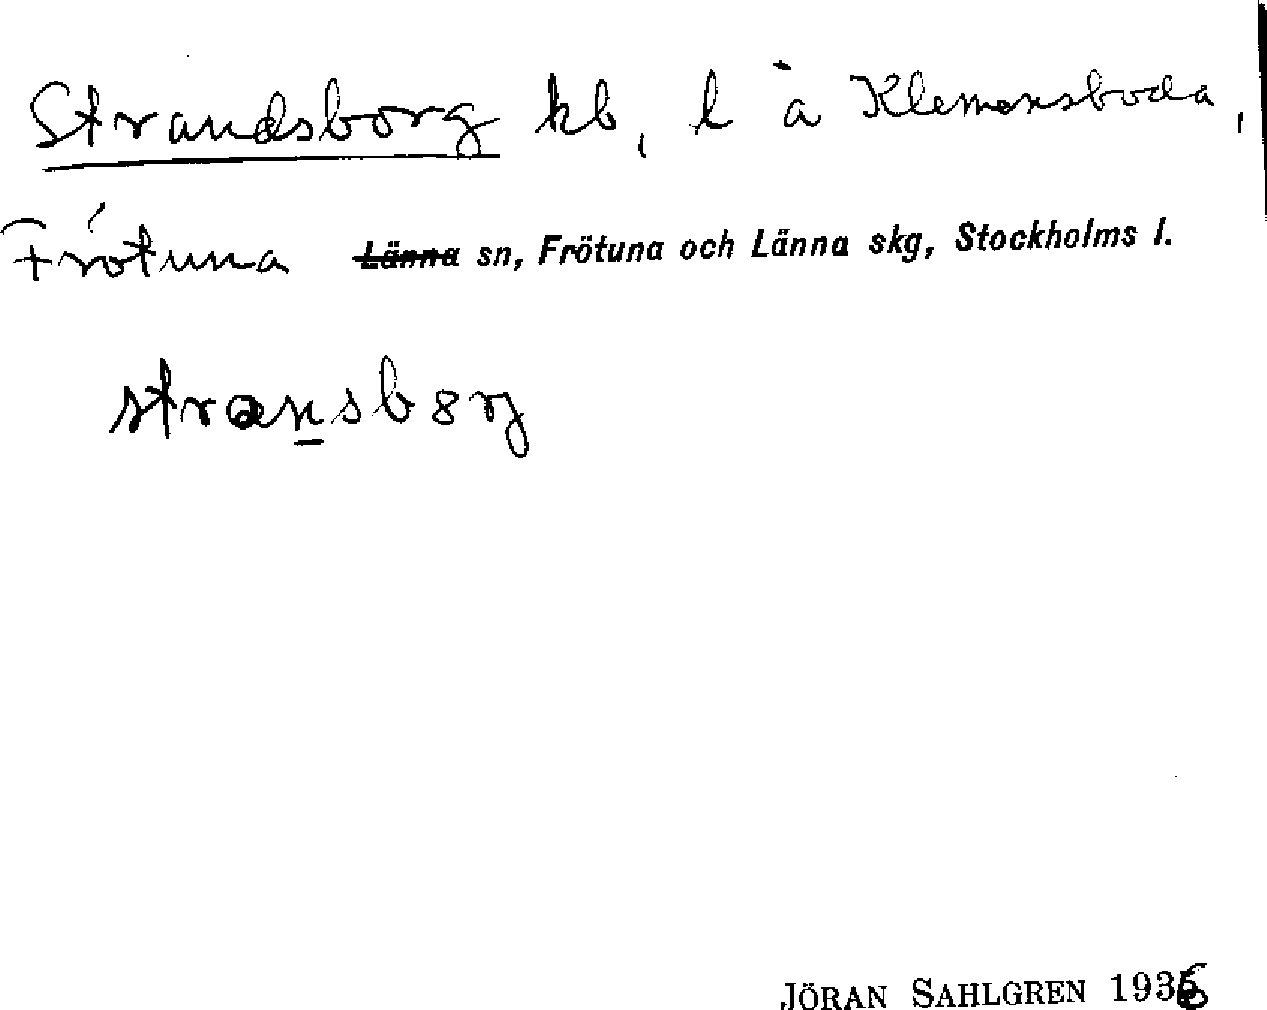 Strandsborg kb, l å Klemensboda,
Frötuna Länna sn, Frötuna och Länna skg, Stockholms l.
stransb8rj
JÖRAN SAHLGREN 1936